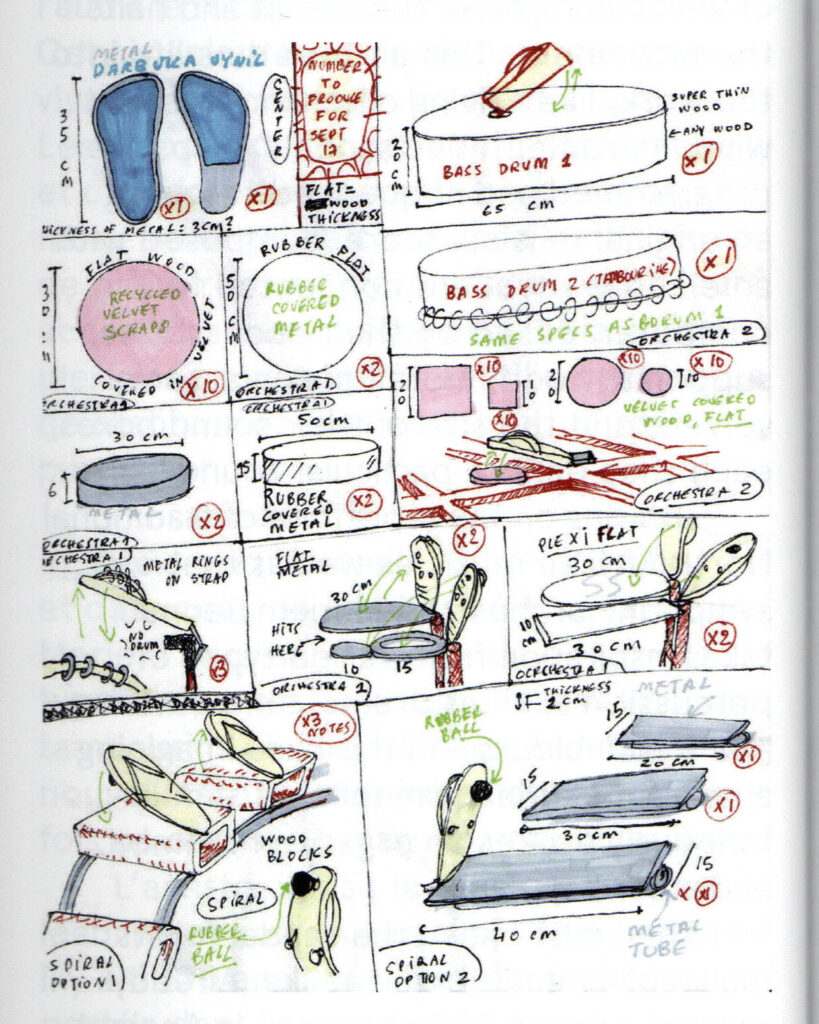 METAL
DARBUKA VYNIL
35 CM
x1
x1
CENTER
THICKNESS OF METAL: 3CM?
NUMBER
TO
PRODUCE
FOR
SEPT
12
FLAT =
WOOD
THICKNESS
SUPER THIN
WOOD
ANY WOOD
20 CM
BASS DRUM 1
x1
65 CM
FLAT WOOD
30
RECYCLED
VELVET
SCRAPS
COVERED IN VELVET
x10
ORCHESTRA 1
RUBBER FLAT
50 CM
RUBBER
COVERED
METAL
x2
ORCHESTRA 1
BASS DRUM 2 (TAMBOURINE)
x1
SAME SPECS AS BDRUM 1
ORCHESTRA 2
20
x10
10
x10
20
x10
10
x10
VELVET COVERED
WOOD, FLAT
ORCHESTRA 2
30 CM
6
METAL
x2
ORCHESTRA 1
ORCHESTRA 1
50CM
15
RUBBER
COVERED
METAL
x2
ORCHESTRA 1
METAL RINGS
ON STRAP
NO
DRUM
FLAT
METAL
x2
30 CM
HITS
HERE
10
15
ORCHESTRA 1
PLEXI FLAT
30 CM
10 CM
30 CM
x2
OCRCHESTRA 1
x3
NOTES
WOOD
BLOCKS
SPIRAL
RUBBER
BALL
SPIRAL
OPTION 1
THICKNESS
2 CM
METAL
RUBBER
BALL
15
20 CM
x1
15
30 CM
x1
15
x1
40 CM
METAL
TUBE
SPIRAL
OPTION 2